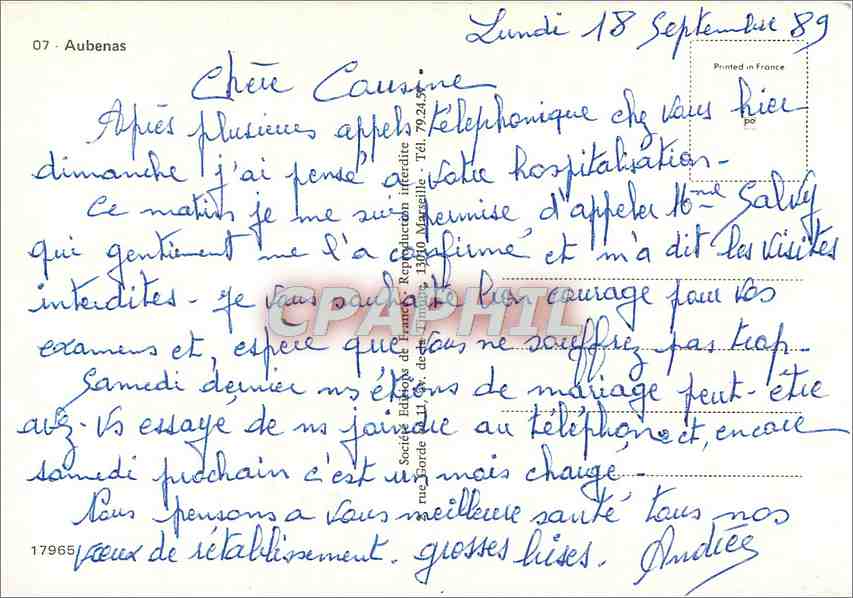 Lundi 18 Septembre 89
07 - Aubenas
Printed in France
Chère Cousine
Après plusieurs appels téléphonique chez vous hier
dimanche j'ai pensé a votre hospitalisation -
Ce matin je me suis permise, d'appeler Mme Salvy
qui gentiement me l'a confirmé, et m'a dit les visites
interdites - Je vous souhaite bon courage pour vos
examens et, espère que vous ne souffrez pas trop -
Samedi dernier ns étions de mariage peut-être
avez-vs essayé de ns joindre au téléphone et, encore
samedi prochain c'est un mois chargé -
Nous pensons a vous meilleure santé tous nos
vœux de rétablissement - grosses bises - Andrée
17965
Société Editions de France - Reproduction interdite
rue Gorde 9-11, Av. de la Timone, 13010 Marseille - Tél. 79.24.57
CPAPHIL